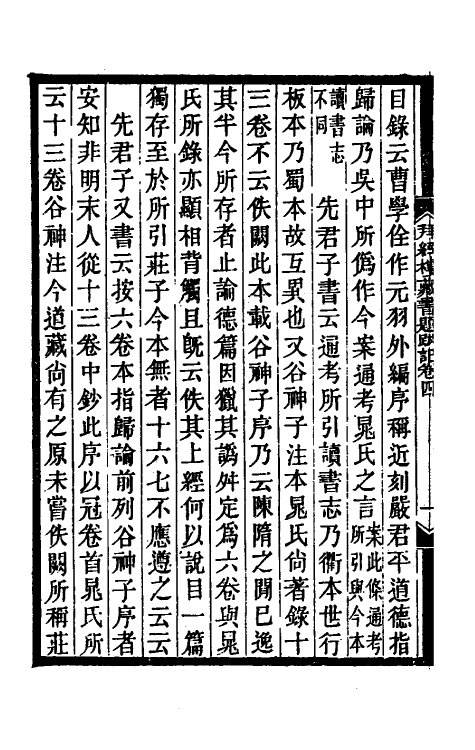 目錄云曹學佺作元羽外編序稱近刻嚴君平道德指
歸論乃吳中所僞作今案通考晁氏之言案此條通考所引與今本
讀書志不同　先君子書云通考所引讀書志乃衢本世行
板本乃蜀本故互異也又谷神子注本晁氏尚著錄十
三卷不云佚闕此本載谷神子序乃云陳隋之間已逸
其半今所存者止論德篇因獵其譌舛定爲六卷與晁
氏所錄亦顯相背觸且旣云佚其上經何以說目一篇
獨存至於所引莊子今本無者十六七不應遵之云云
先君子又書云按六卷本指歸論前列谷神子序者
安知非明末人從十三卷中鈔此序以冠卷首晁氏所
云十三卷谷神注今道藏尙有之原未嘗佚闕所稱莊
拜經樓藏書題跋記卷四
一